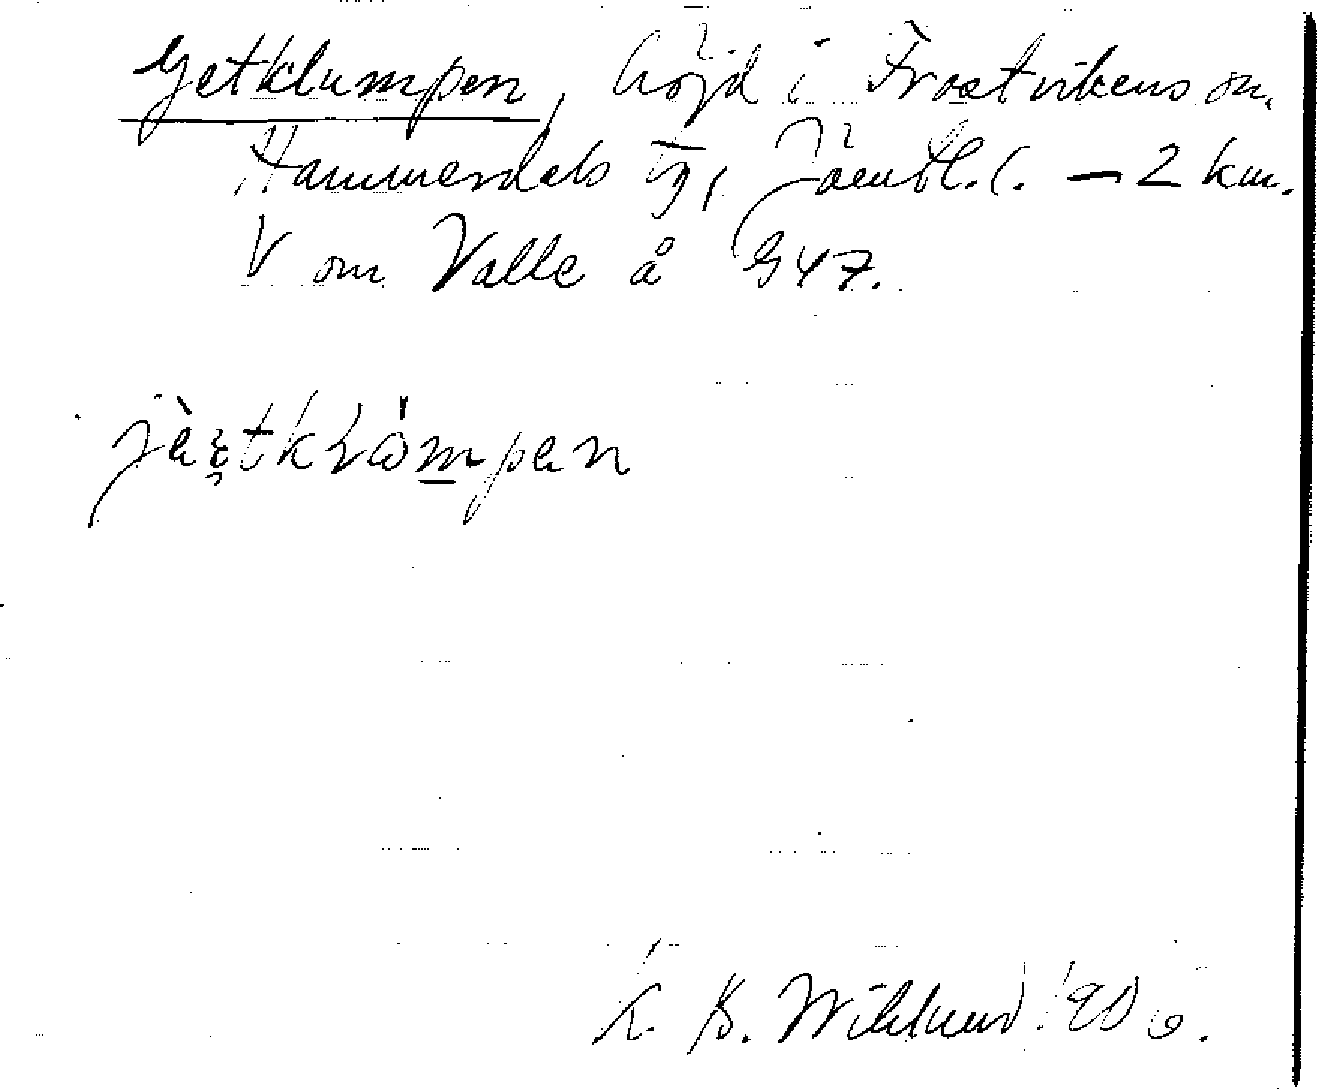 Getklumpen, höjd i Frostvikens sn.
Hammerdals tg, Jämtl. l. — 2 km.
V om Valle å G47.
jètklómpen
K. B. Wiklund 1906.